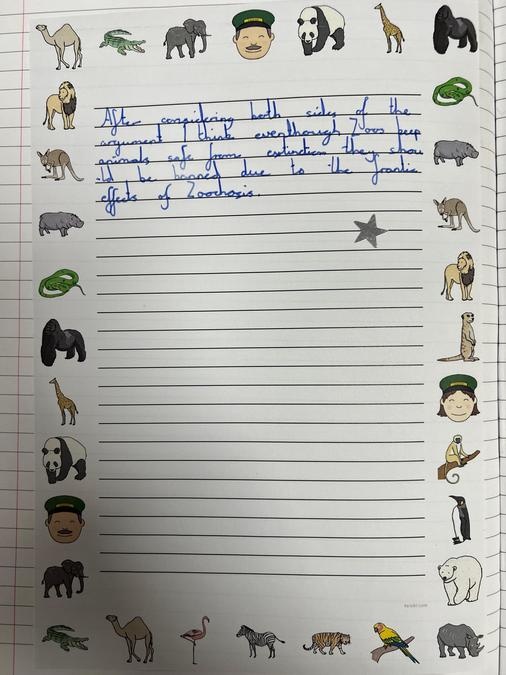 After considering both sides of the
argument I think eventhough Zoos keep
animals safe from extinction they shou
ld be banned due to the frantic
effects of Zoochosis.
twinkl.com